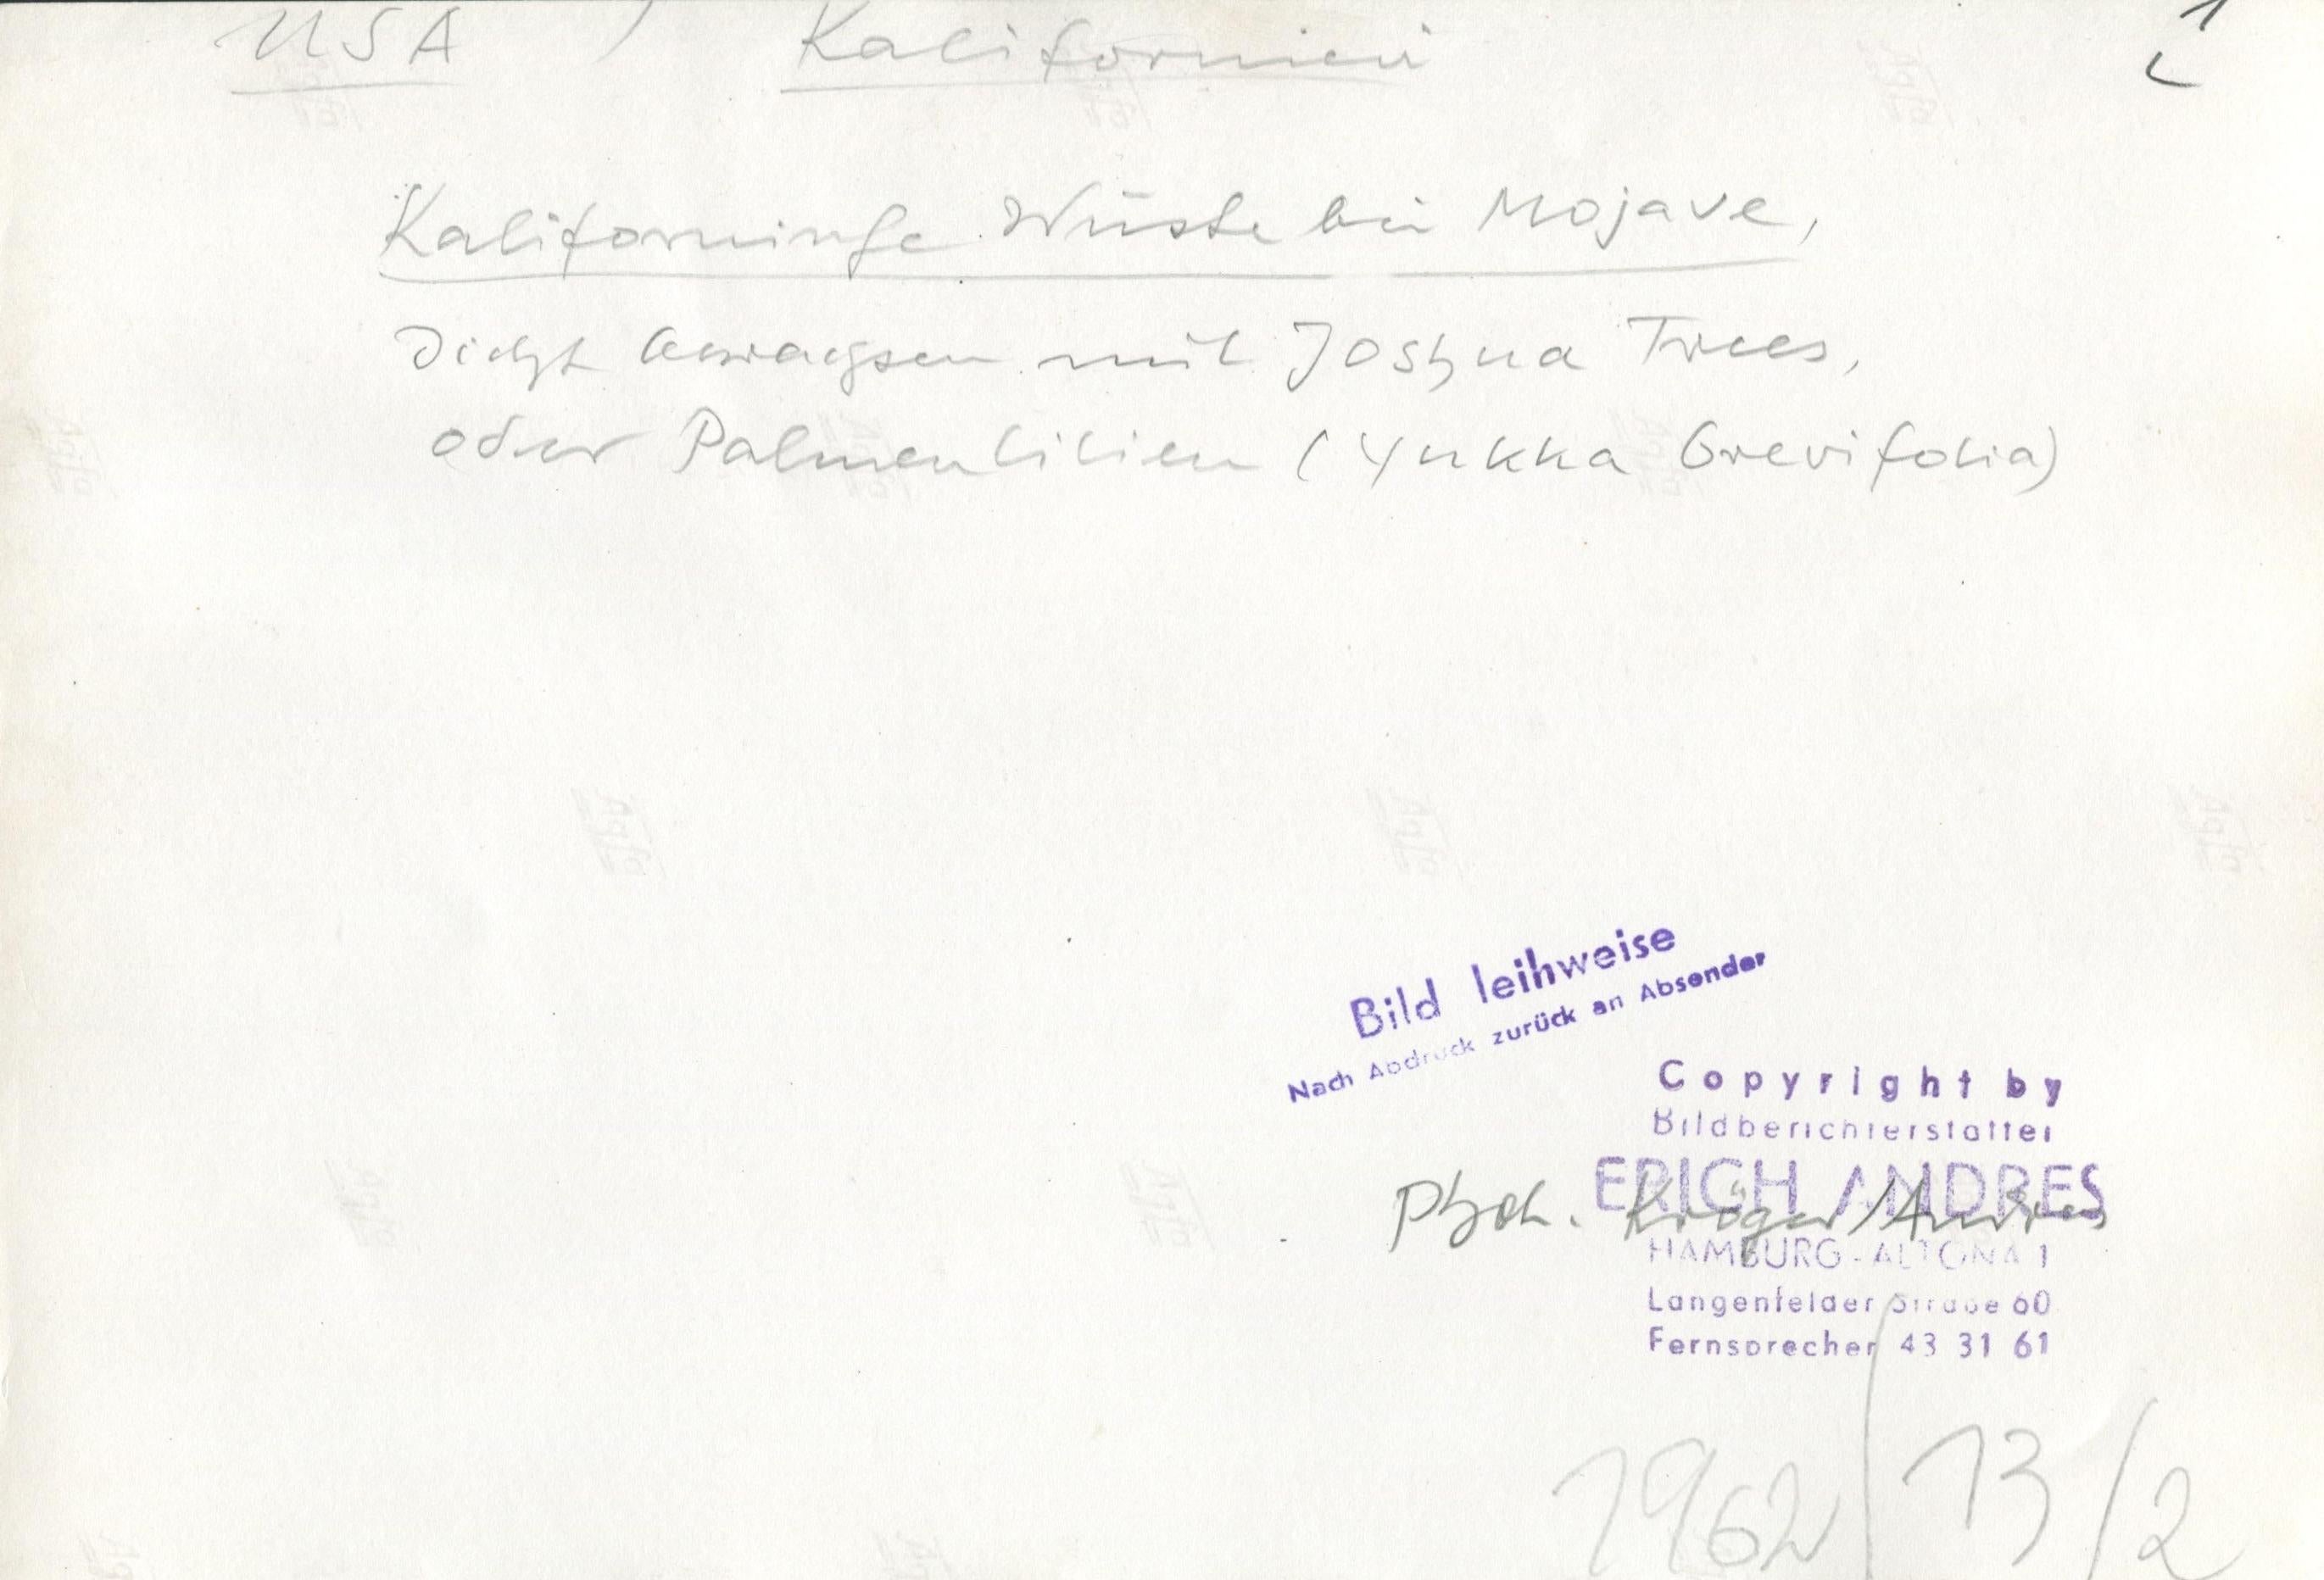 USA / Kalifornien
Kalifornische Wüste bei Mojave,
dicht bewachsen mit Joshua Trees,
oder Palmenlilien (Yukka brevifolia)
Bild leihweise
Nach Abdruck zurück an Absender
Copyright by
Bildberichterstatter
ERICH ANDRES
Phot. Kröger/Andres
HAMBURG-ALTONA 1
Langenfelder Straße 60
Fernsprecher 43 31 61
1962/13/2